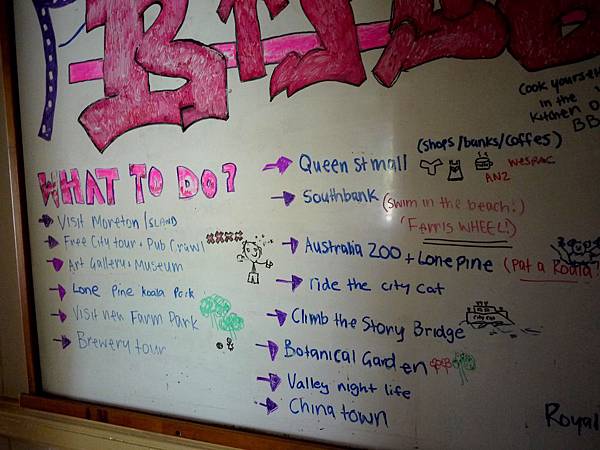 WHAT TO DO?
Visit Moreton ISLAND
Free City tour + Pub Crawl
Art Gallery + Museum
Lone Pine Koala Park
Visit new Farm Park
Brewery tour
(shops/banks/coffes)
Queen st mall
WESPAC
ANZ
Southbank (swim in the beach!)
'Ferris WHEEL!)
Australia ZOO + Lone Pine (Pat a Koala!
ride the city cat
Climb the Story Bridge
city cat
Botanical Garden
Valley night life
China town
Cook yourself
in the
Kitchen
BB
Royal